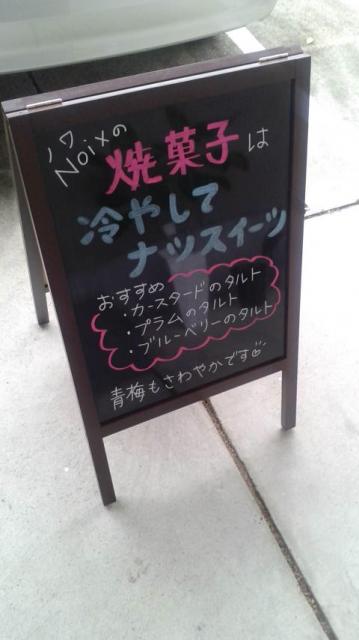 ノワ
Noixの
焼菓子は
冷やして
ナツスイーツ
おすすめ
・カスタードのタルト
・プラムのタルト
・ブルーベリーのタルト
青梅もさわやかです